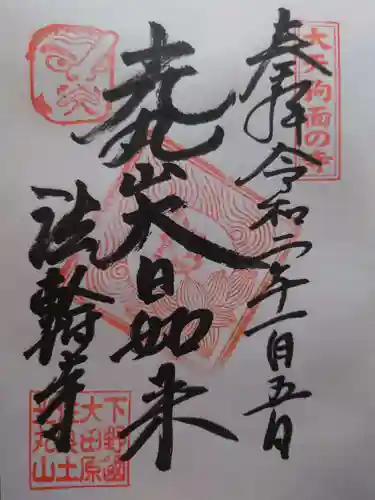 大天狗面の寺
奉拝 令和二年一月五日
光丸山大日如来
法輪寺
下野國
大田原
佐良土
光丸山